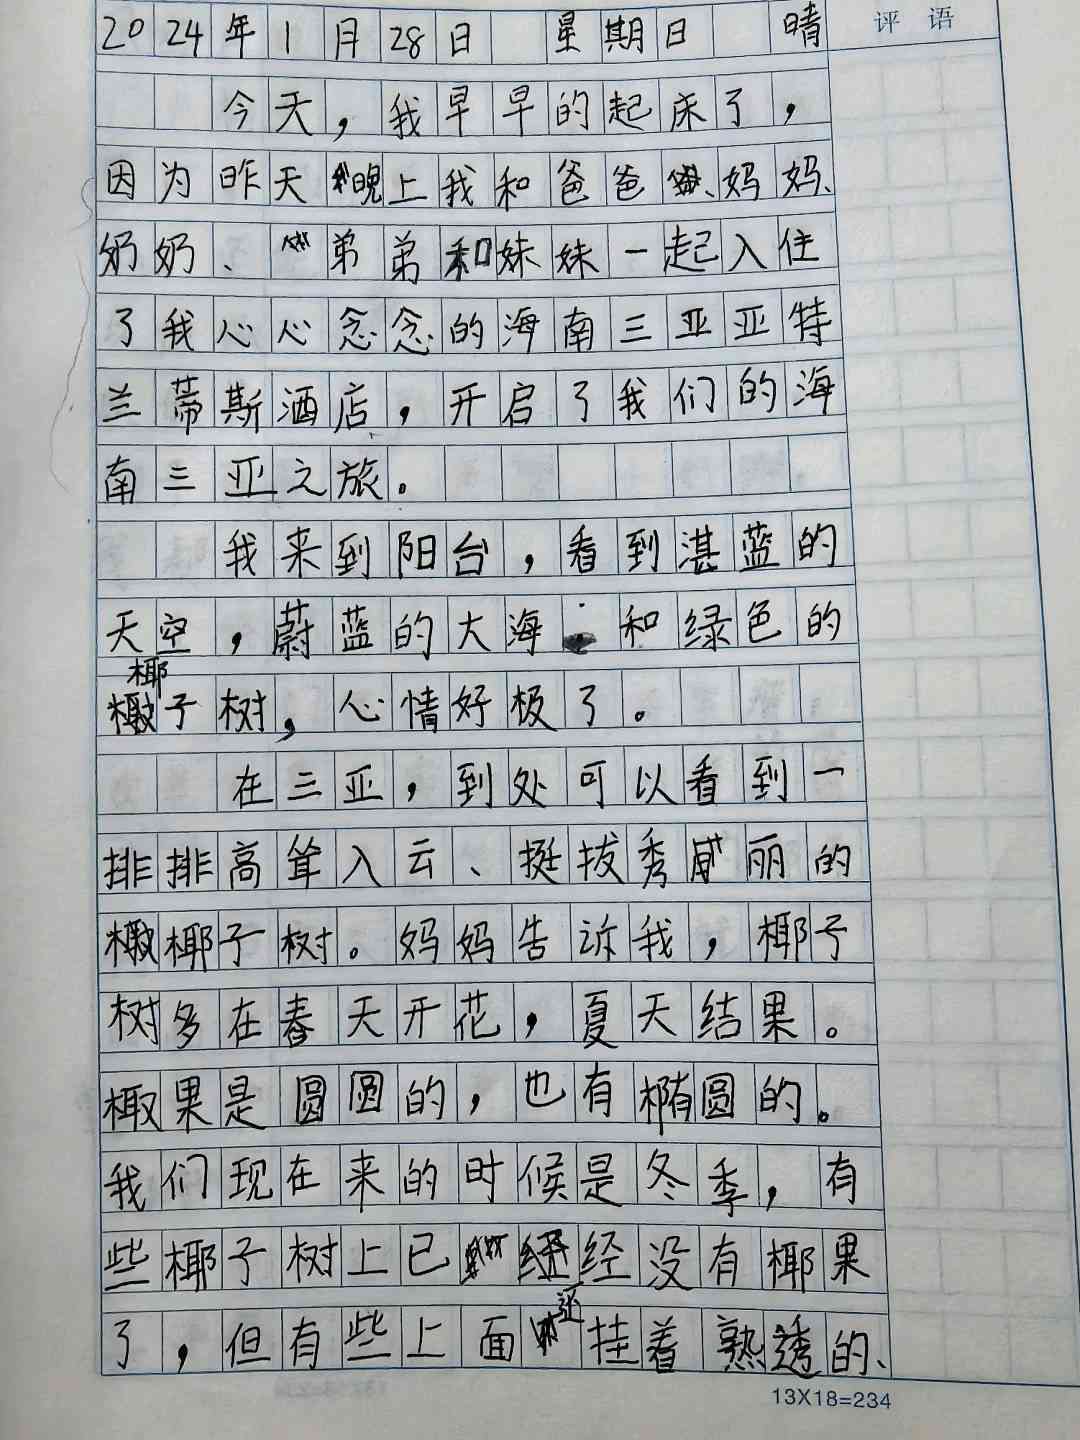 2024年1月28日 星期日 晴
评语
今天，我早早的起床了，
因为昨天晚上我和爸爸、妈妈、
奶奶、弟弟和妹妹一起入住
了我心心念念的海南三亚亚特
兰蒂斯酒店，开启了我们的海
南三亚之旅。
我来到阳台，看到湛蓝的
天空，蔚蓝的大海和绿色的
椰子树，心情好极了。
在三亚，到处可以看到一
排排高耸入云、挺拔秀丽的
椰子树。妈妈告诉我，椰子
树多在春天开花，夏天结果。
果是圆圆的，也有椭圆的。
我们现在来的时候是冬季，有
些椰子树上已经没有椰果
了，但有些上面还挂着熟透的、
13X18=234